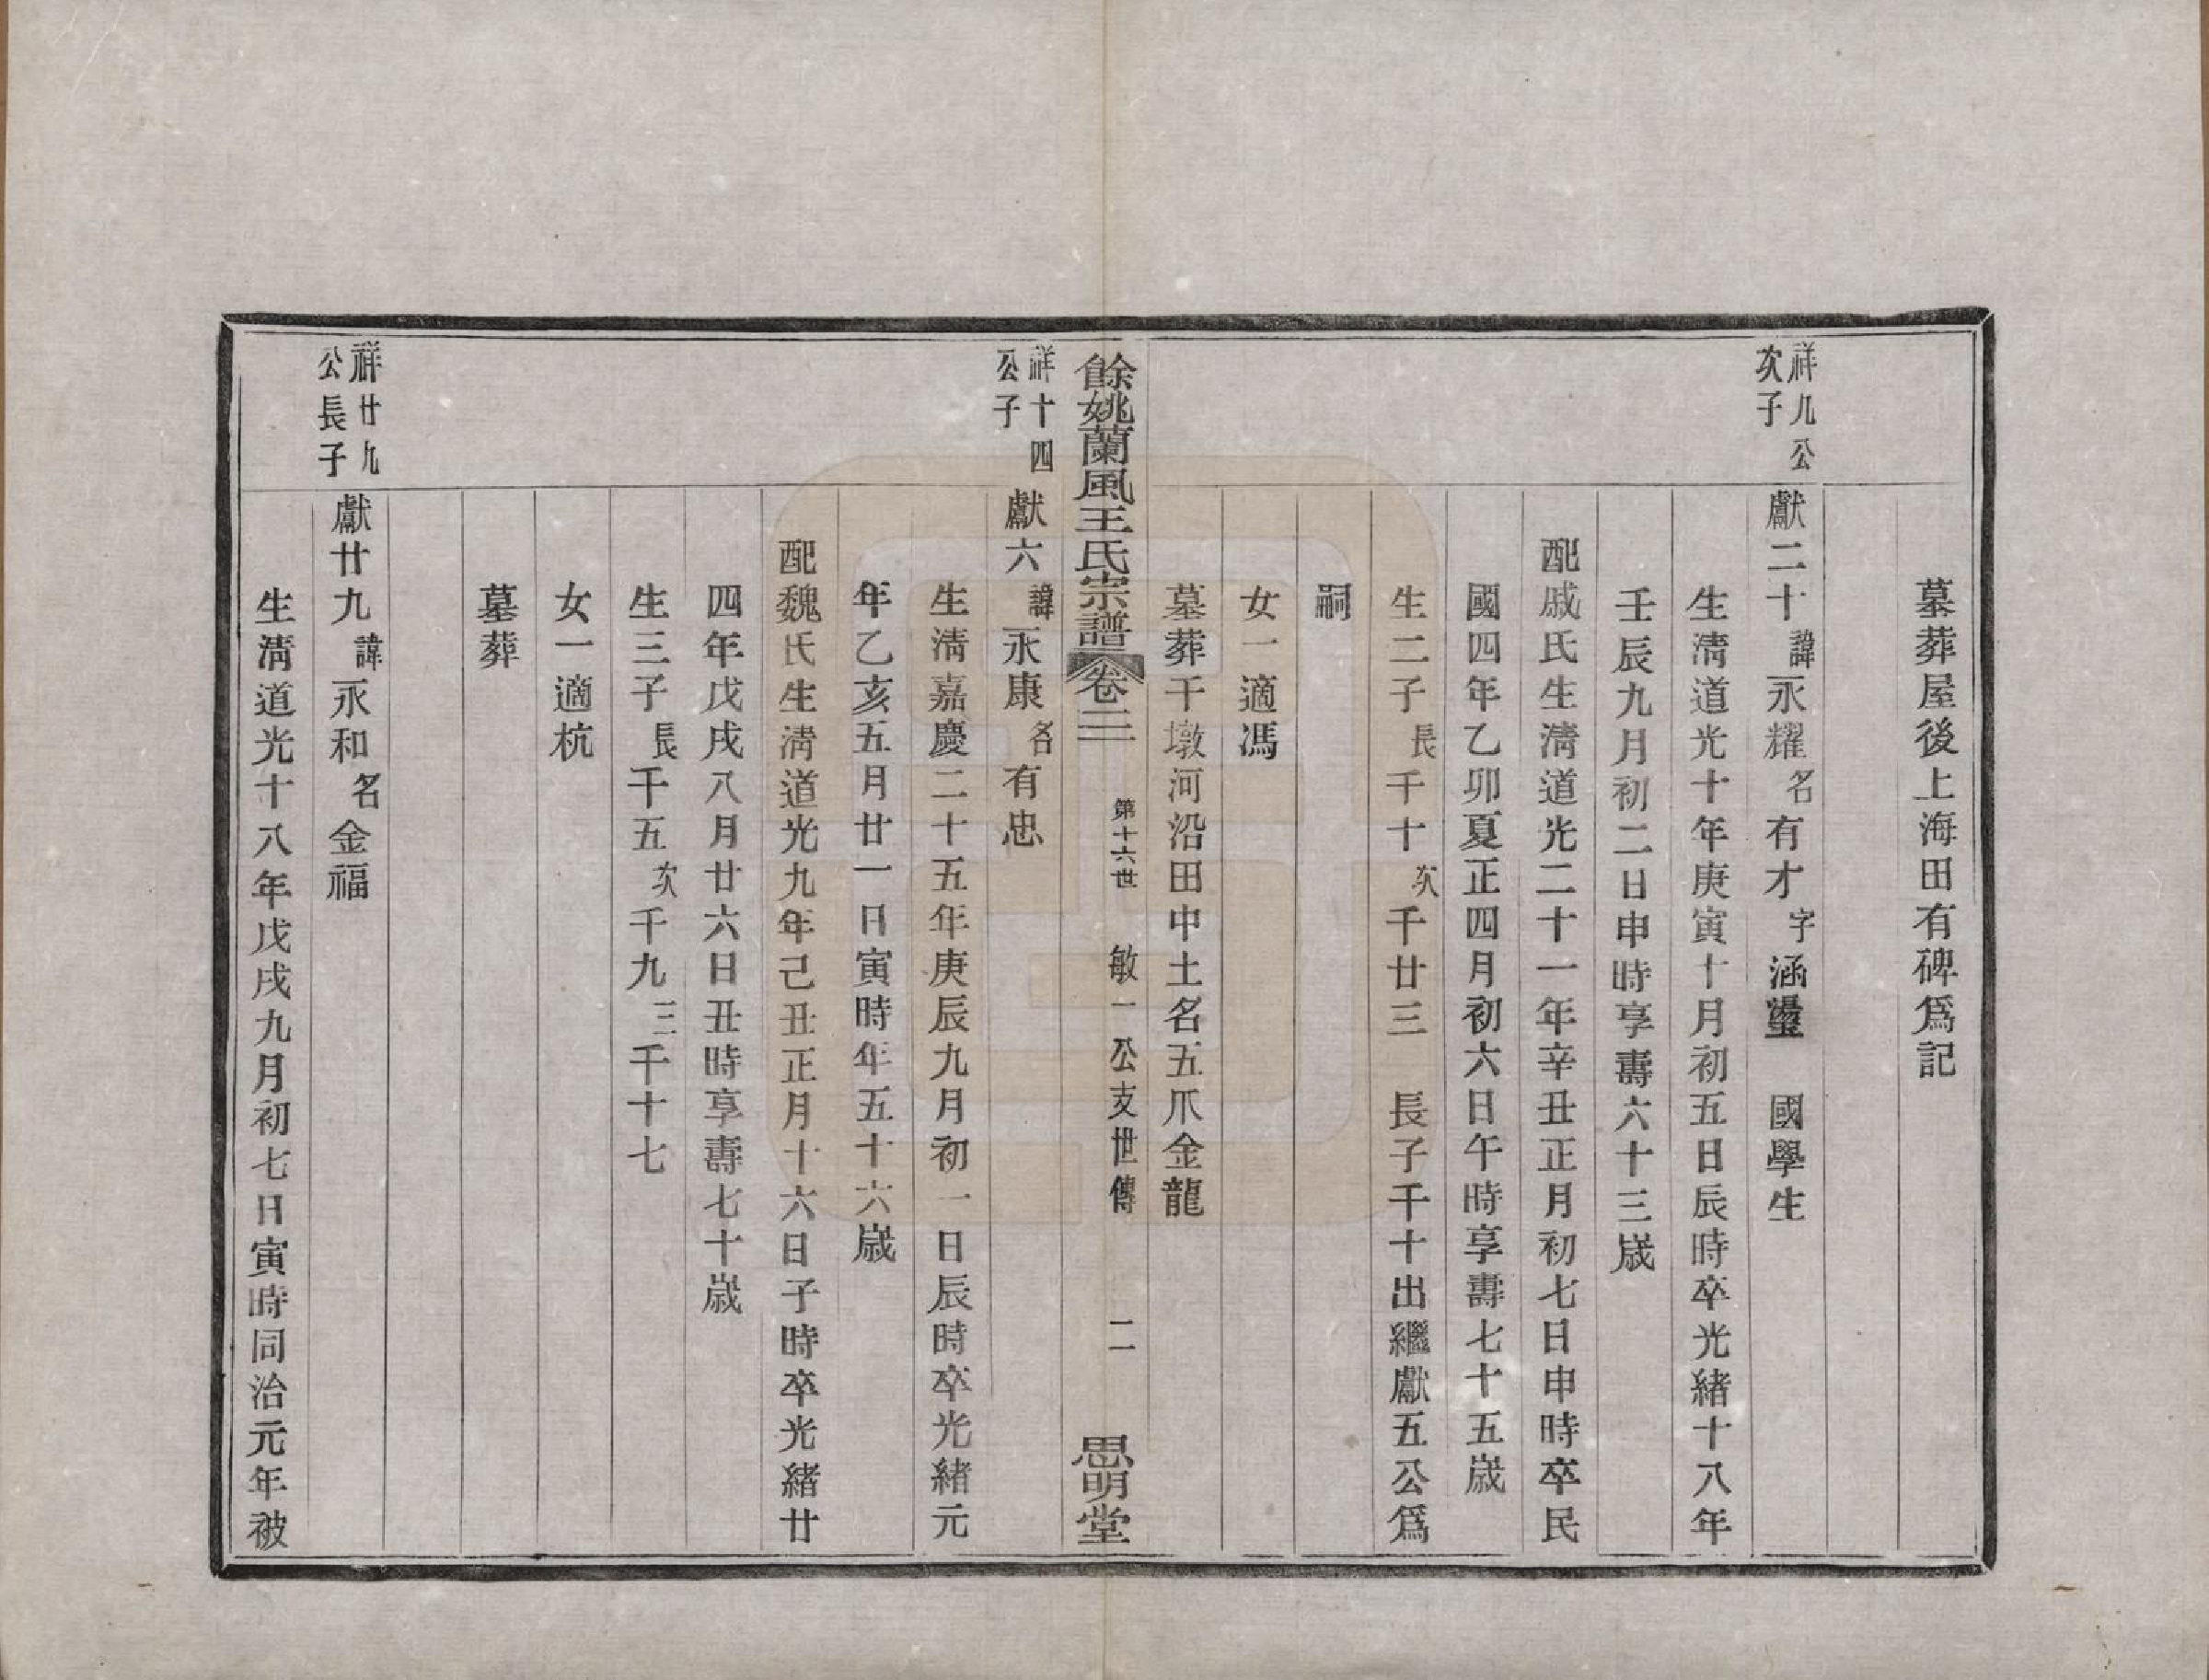 墓葬屋後上海田有碑爲記
祥九公
次子
獻二十諱永耀名有才字涵璗 國學生
生淸道光十年庚寅十月初五日辰時卒光緖十八年
壬辰九月初二日申時享壽六十三歲
配戚氏生淸道光二十一年辛丑正月初七日申時卒民
國四年乙卯夏正四月初六日午時享壽七十五歲
生二子長千十次千廿三 長子千十出繼獻五公爲
嗣
女一適馮
墓葬干墩河沿田中土名五爪金龍
餘姚蘭風王氏宗譜 卷二 第十六世 敏一公支世傳 二 思明堂
祥十四
公子
獻六諱永康名有忠
生淸嘉慶二十五年庚辰九月初一日辰時卒光緖元
年乙亥五月廿一日寅時年五十六歲
配魏氏生淸道光九年己丑正月十六日子時卒光緖廿
四年戊戌八月廿六日丑時享壽七十歲
生三子長千五次千九三千十七
女一適杭
墓葬
祥廿九
公長子
獻廿九諱永和名金福
生淸道光十八年戊戌九月初七日寅時同治元年被